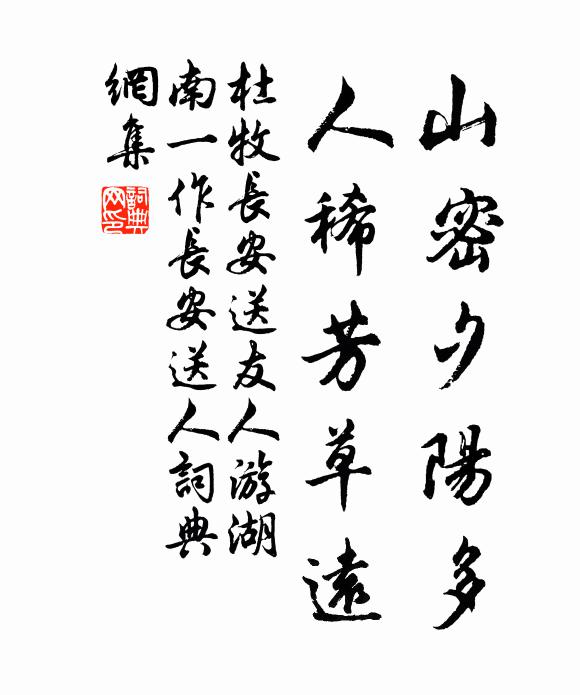 山密夕陽多
人稀芳草遠
杜牧長安送友人游湖
南一作長安送人詞典
網集
詞典
网印